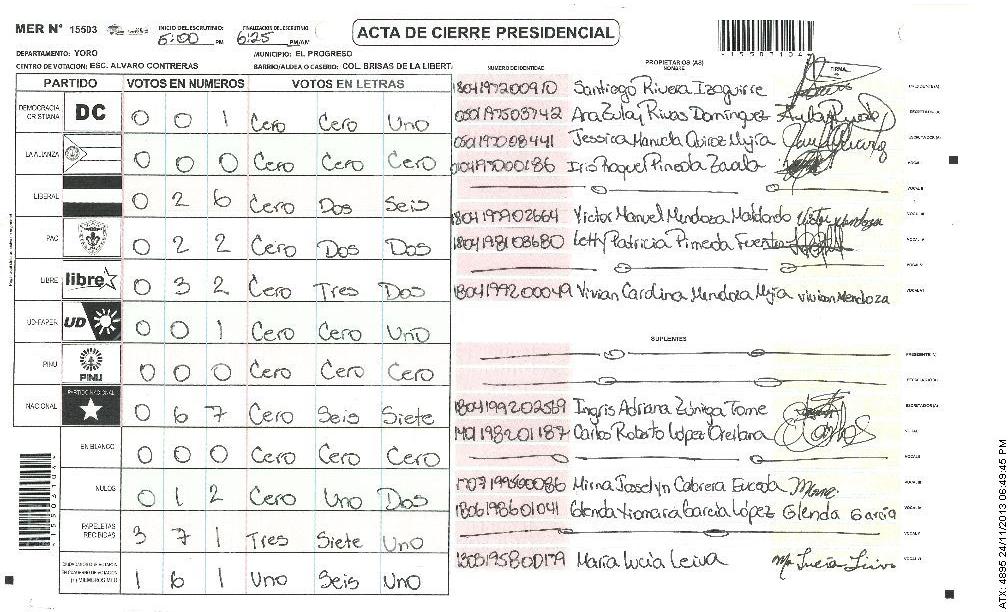 MER N° 15503 INICIO DEL ESCRUTINIO: 5:00 PM FINALIZACION DEL ESCRUTINIO 6:25 PM/AM
ACTA DE CIERRE PRESIDENCIAL
DEPARTAMENTO: YORO MUNICIPIO: EL PROGRESO
CENTRO DE VOTACION: ESC. ALVARO CONTRERAS BARRIO/ALDEA O CASERIO: COL. BRISAS DE LA LIBERT
PARTIDO VOTOS EN NUMEROS VOTOS EN LETRAS
DEMOCRACIA CRISTIANA DC 0 0 1 Cero Cero Uno
LA ALIANZA 0 0 0 Cero Cero Cero
LIBERAL 0 2 6 Cero Dos Seis
PAC 0 2 2 Cero Dos Dos
LIBRE libre 0 3 2 Cero Tres Dos
UD-FAPER UD 0 0 1 Cero Cero Uno
PINU PINU 0 0 0 Cero Cero Cero
NACIONAL PARTIDO NACIONAL 0 6 7 Cero Seis Siete
EN BLANCO 0 0 0 Cero Cero Cero
NULOS 0 1 2 Cero Uno Dos
PAPELETAS RECIBIDAS 3 7 1 Tres Siete Uno
1 6 1 Uno Seis Uno
NUMERO DE IDENTIDAD PROPIETARIOS (AS) NOMBRE FIRMA
1804197200910 Santiago Rivera Izaguirre
0501197503742 Ana Zulay Rivas Dominguez
Jessica Mariela Quiroz Mejia
Iris Raquel Pineda Zavala
1804199902664 Victor Manuel Mendoza Maldonado Victor Mendoza
1804198108680 Letty Patricia Pineda Fuentes
1804199200049 Vivian Carolina Mendoza Mejia Vivian Mendoza
SUPLENTES
1804199202569 Ingris Adriana Zúniga Tome
1401198201187 Carlos Roberto López Orellana
1707199500086 Mirna Josselyn Cabrera Euceda Mirna
1806198601041 Glenda Xiomara Garcia López Glenda Garcia
1303195800179 Maria Lucia Leiva
ATX: 4895 24/11/2013 06:49:45 PM